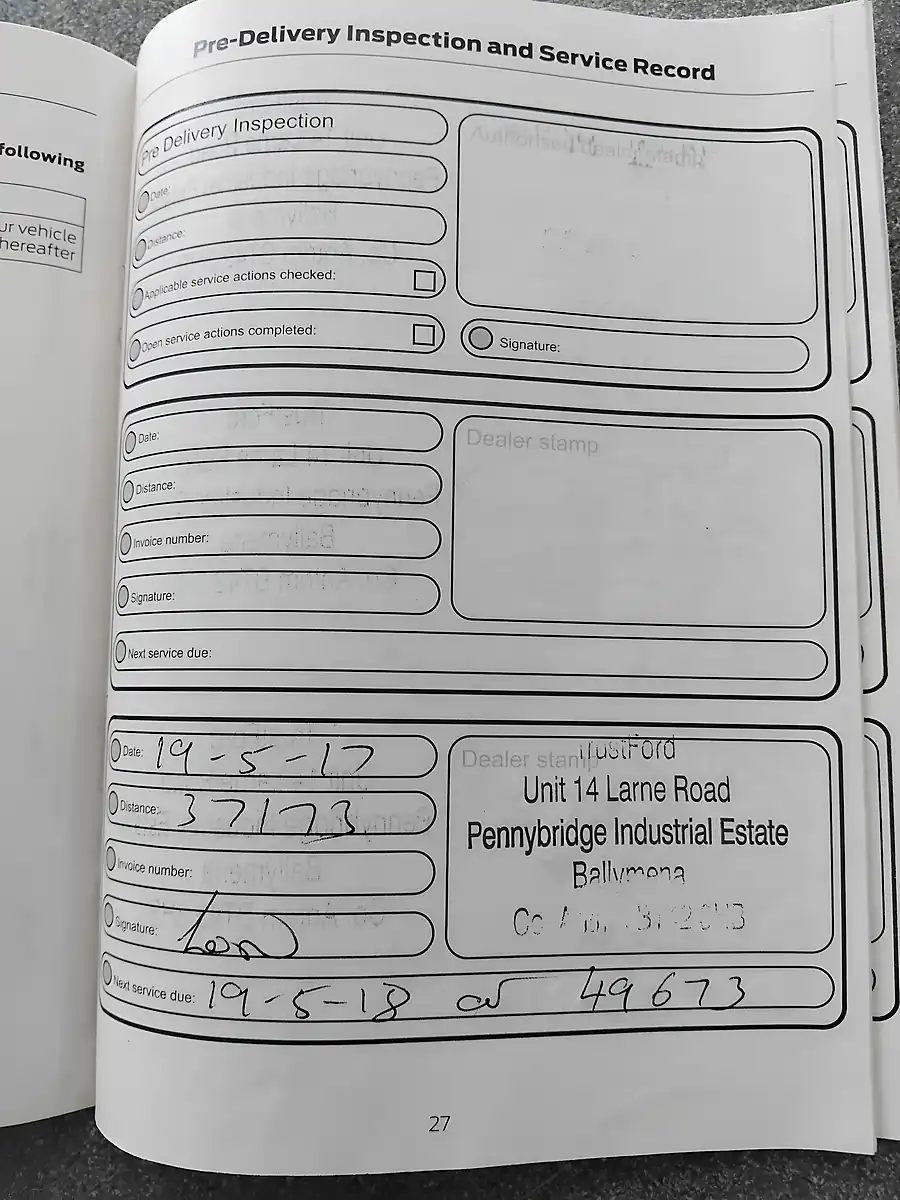 following
ur vehicle
hereafter
Pre-Delivery Inspection and Service Record
Pre Delivery Inspection
Date:
Distance:
Applicable service actions checked:
Open service actions completed:
Authorised dealer stamp
Signature:
Date:
Distance:
Invoice number:
Signature:
Next service due:
Dealer stamp
Date: 19-5-17
Distance: 37173
Invoice number:
Signature:
Next service due: 19-5-18 or 49673
Dealer stamp
TrustFord
Unit 14 Larne Road
Pennybridge Industrial Estate
Ballymena
Co
27